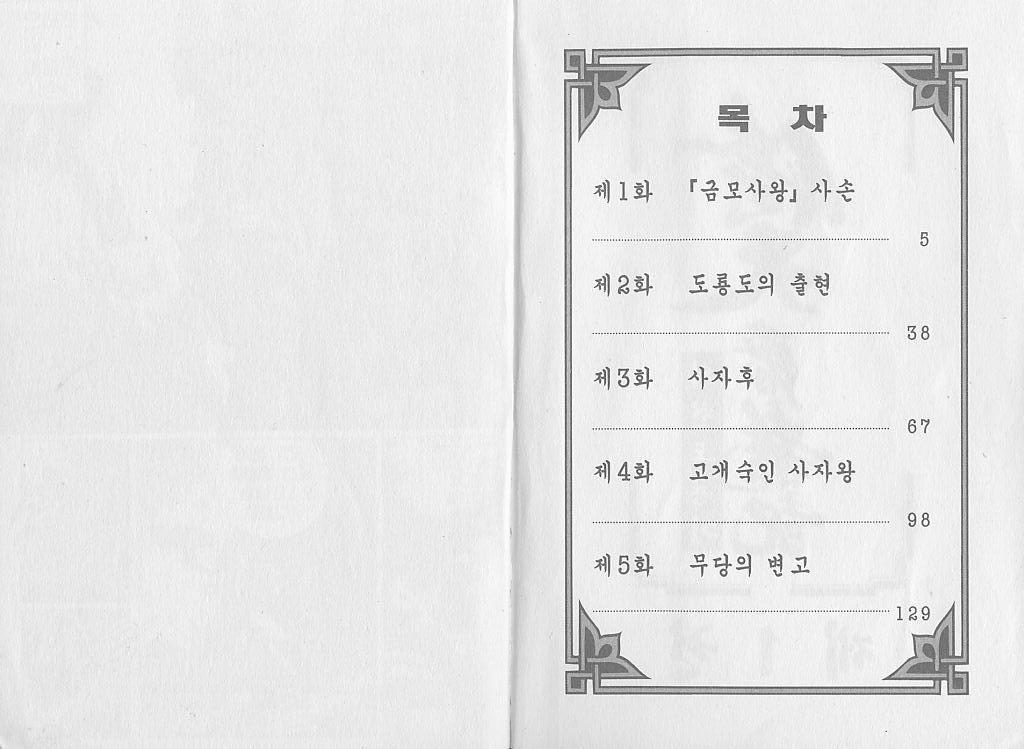 목 차
제1화 『금모사왕』 사손
5
제2화 도룡도의 출현
38
제3화 사자후
67
제4화 고개숙인 사자왕
98
제5화 무당의 변고
129